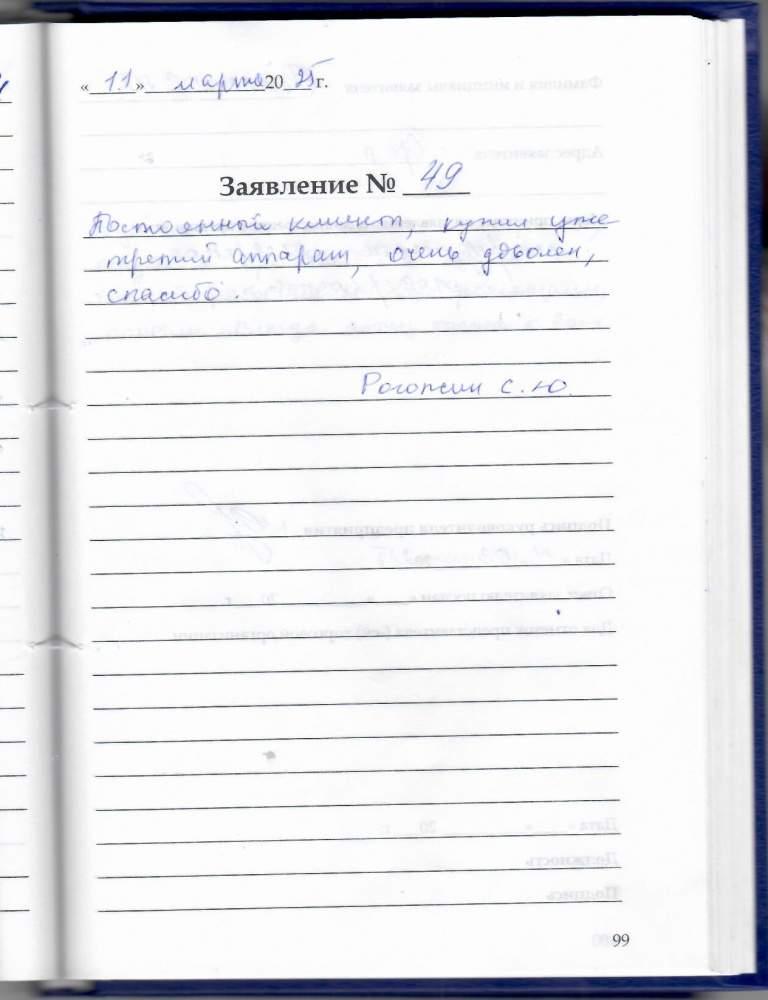 «11» марта 2025 г.
Заявление № 49
Постоянный клиент, купил уже
третий аппарат, очень доволен,
спасибо.
Рогожин С.Ю.
99